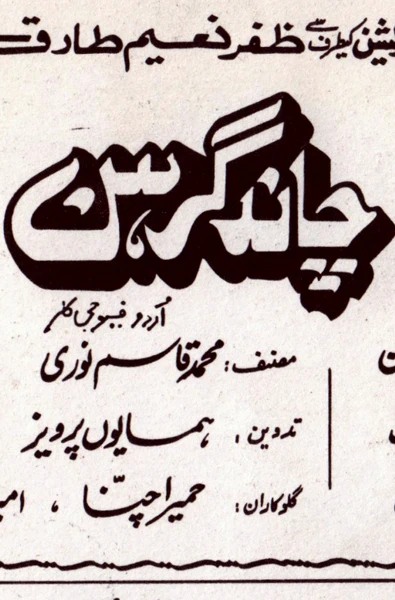 کیطرف سے ظفر نعیم طارق
چاند گرہن
اُردو فیوجی کلر
مصنف: محمد قاسم نوری
تدوین: ہمایوں پرویز
گلوکاران: حمیرا چنّا ،